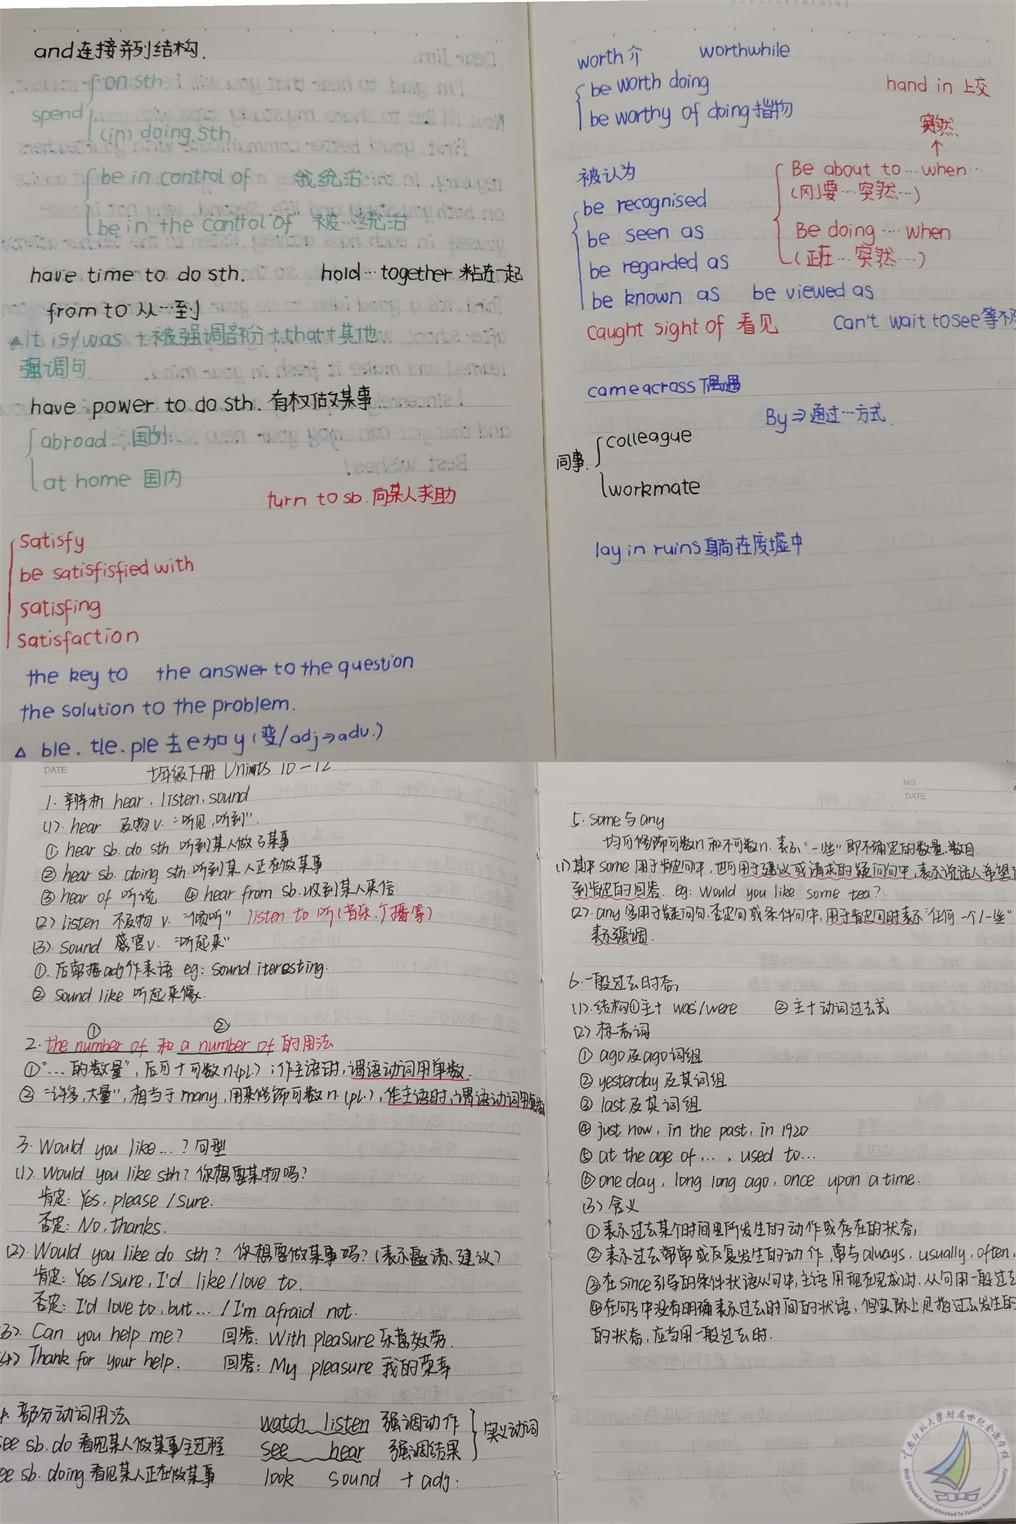 and连接并列结构.
spend
on sth
(in) doing sth.
be in control of 统治
be in the control of 被…统治
have time to do sth. hold…together 粘在一起
from to 从…到
It is/was +被强调部分+that+其他
强调句
have power to do sth. 有权做某事
abroad 国外
at home 国内
turn to sb. 向某人求助
satisfy
be satisfisfied with
satisfing
satisfaction
the key to the answer to the question
the solution to the problem.
△ ble. tle. ple 去e加y (变/adj→adv.)
worth 介 worthwhile
be worth doing
be worthy of doing 指物
hand in 上交
突然
被认为
be recognised
be seen as
be regarded as
be known as be viewed as
Be about to … when …
(刚要…突然…)
Be doing … when
(正在…突然…)
caught sight of 看见
can't wait to see
came across 偶遇
By⇒通过…方式
同事.
colleague
workmate
lay in ruins 躺在废墟中
DATE
七年级下册 Units 10-12
1. 辨析 hear, listen, sound
(1). hear 及物v. "听见,听到".
① hear sb. do sth 听到某人做了某事
② hear sb. doing sth 听到某人正在做某事
③ hear of 听说 ④ hear from sb. 收到某人来信
(2) listen 不及物 v. "倾听" listen to 听(音乐,广播等)
(3). sound 感官v. "听起来"
①. 后常接adj作表语 eg: sound iteresting.
② sound like 听起来像.
① ②
2. the number of 和 a number of 的用法
①"…的数量", 后可+可数n.(pl.); 作主语时,谓语动词用单数.
② "许多,大量", 相当于many, 用来修饰可数n.(pl.), 作主语时,谓语动词用复数
3. Would you like…? 句型
(1). Would you like sth? 你想要某物吗?
肯定: Yes, please / sure.
否定: No, thanks.
(2). Would you like do sth? 你想要做某事吗? (表示邀请、建议)
肯定: Yes / sure, I'd like / love to.
否定: I'd love to, but… / I'm afraid not.
(3). Can you help me? 回答: With pleasure 乐意效劳.
(4) Thank for your help. 回答: My pleasure 我的荣幸
部分动词用法
see sb. do 看见某人做某事全过程
see sb. doing 看见某人正在做某事
watch listen 强调动作
see hear 强调结果
实义动词
look sound + adj.
NO
DATE
5. some 与 any
均可修饰可数n和不可数n. 表示"一些"即不确定的数量、数目.
(1) 其中 some 用于肯定句中, 也可用于建议或请求的疑问句中, 表示说话人希望
到肯定的回答. eg: Would you like some tea?
(2). any 多用于疑问句.否定句或条件句中, 用于肯定句时表示"任何一个/一些"
表示强调.
6. 一般过去时态,
(1). 结构①主+ was/were ②主+动词过去式
(2). 标志词
① ago及ago词组
② yesterday 及其词组
③ last及其词组
④ just now, in the past, in 1920
⑤ at the age of …, used to …
⑥ one day, long long ago, once upon a time.
(3) 含义
① 表示过去某个时间里所发生的动作或存在的状态,
② 表示过去常常或反复发生的动作, 常与always, usually, often,
③ 在since引导的条件状语从句中, 主语用现在完成时. 从句用一般过去
④ 在句子中没有明确表示过去时间的状语, 但实际上是指过去发生的
的状态, 应当用一般过去时.